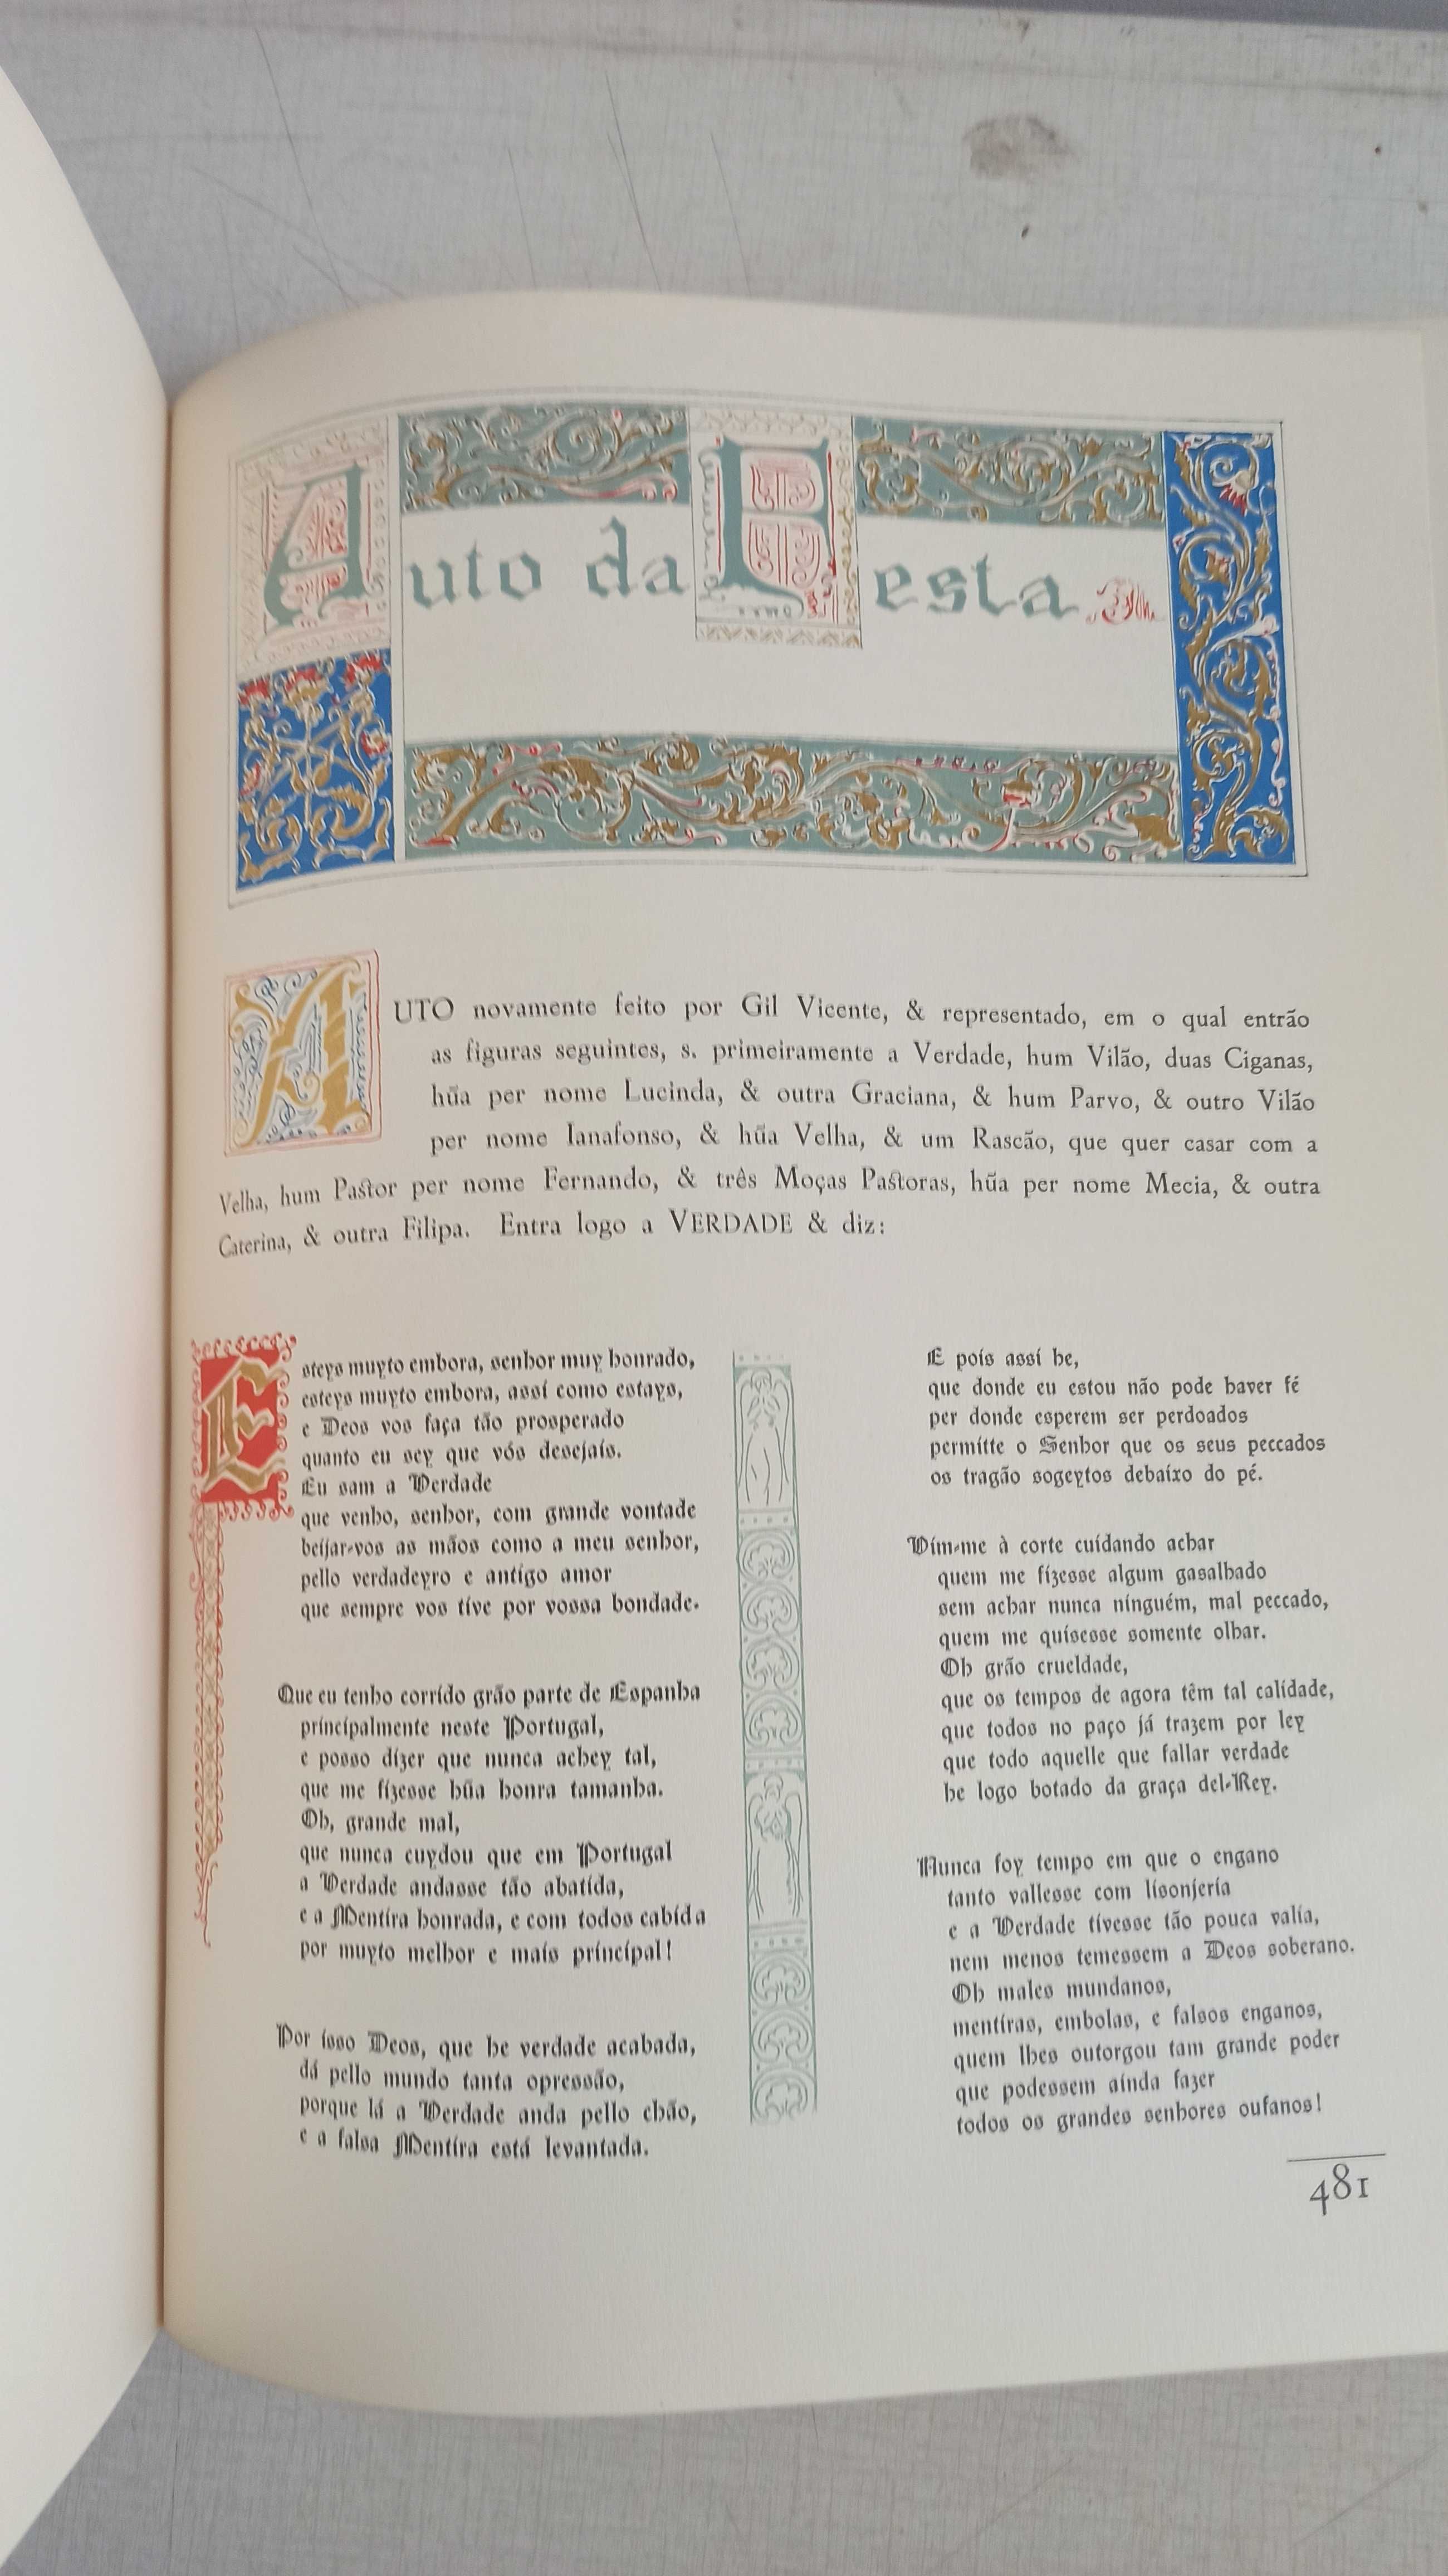 Auto da Festa
AUTO novamente feito por Gil Vicente, & representado, em o qual entrão
as figuras seguintes, s. primeiramente a Verdade, hum Vilão, duas Ciganas,
hũa per nome Lucinda, & outra Graciana, & hum Parvo, & outro Vilão
per nome Ianafonso, & hũa Velha, & um Rascão, que quer casar com a
Velha, hum Pastor per nome Fernando, & três Moças Pastoras, hũa per nome Mecia, & outra
Caterina, & outra Filipa. Entra logo a VERDADE & diz:
Esteys muyto embora, senhor muy honrado,
esteys muyto embora, assí como estays,
e Deos vos faça tão prosperado
quanto eu sey que vós desejais.
Eu sam a Verdade
que venho, senhor, com grande vontade
beijar-vos as mãos como a meu senhor,
pello verdadeyro e antigo amor
que sempre vos tive por vossa bondade.
Que eu tenho corrido grão parte de Espanha
principalmente neste Portugal,
e posso dizer que nunca achey tal,
que me fizesse hũa honra tamanha.
Oh, grande mal,
que nunca cuydou que em Portugal
a Verdade andasse tão abatida,
e a Mentira honrada, e com todos cabida
por muyto melhor e mais principal!
Por isso Deos, que he verdade acabada,
dá pello mundo tanta opressão,
porque lá a Verdade anda pello chão,
e a falsa Mentira está levantada.
E pois assí he,
que donde eu estou não pode haver fé
per donde esperem ser perdoados
permitte o Senhor que os seus peccados
os tragão sogeytos debaixo do pé.
Vim-me à corte cuidando achar
quem me fizesse algum gasalhado
sem achar nunca ninguém, mal peccado,
quem me quisesse somente olhar.
Oh grão crueldade,
que os tempos de agora têm tal calidade,
que todos no paço já trazem por ley
que todo aquelle que fallar verdade
he logo botado da graça del-Rey.
Nunca foy tempo em que o engano
tanto vallesse com lisonjeria
e a Verdade tivesse tão pouca valia,
nem menos temessem a Deos soberano.
Oh males mundanos,
mentiras, embolas, e falsos enganos,
quem lhes outorgou tam grande poder
que podessem ainda fazer
todos os grandes senhores oufanos!
481